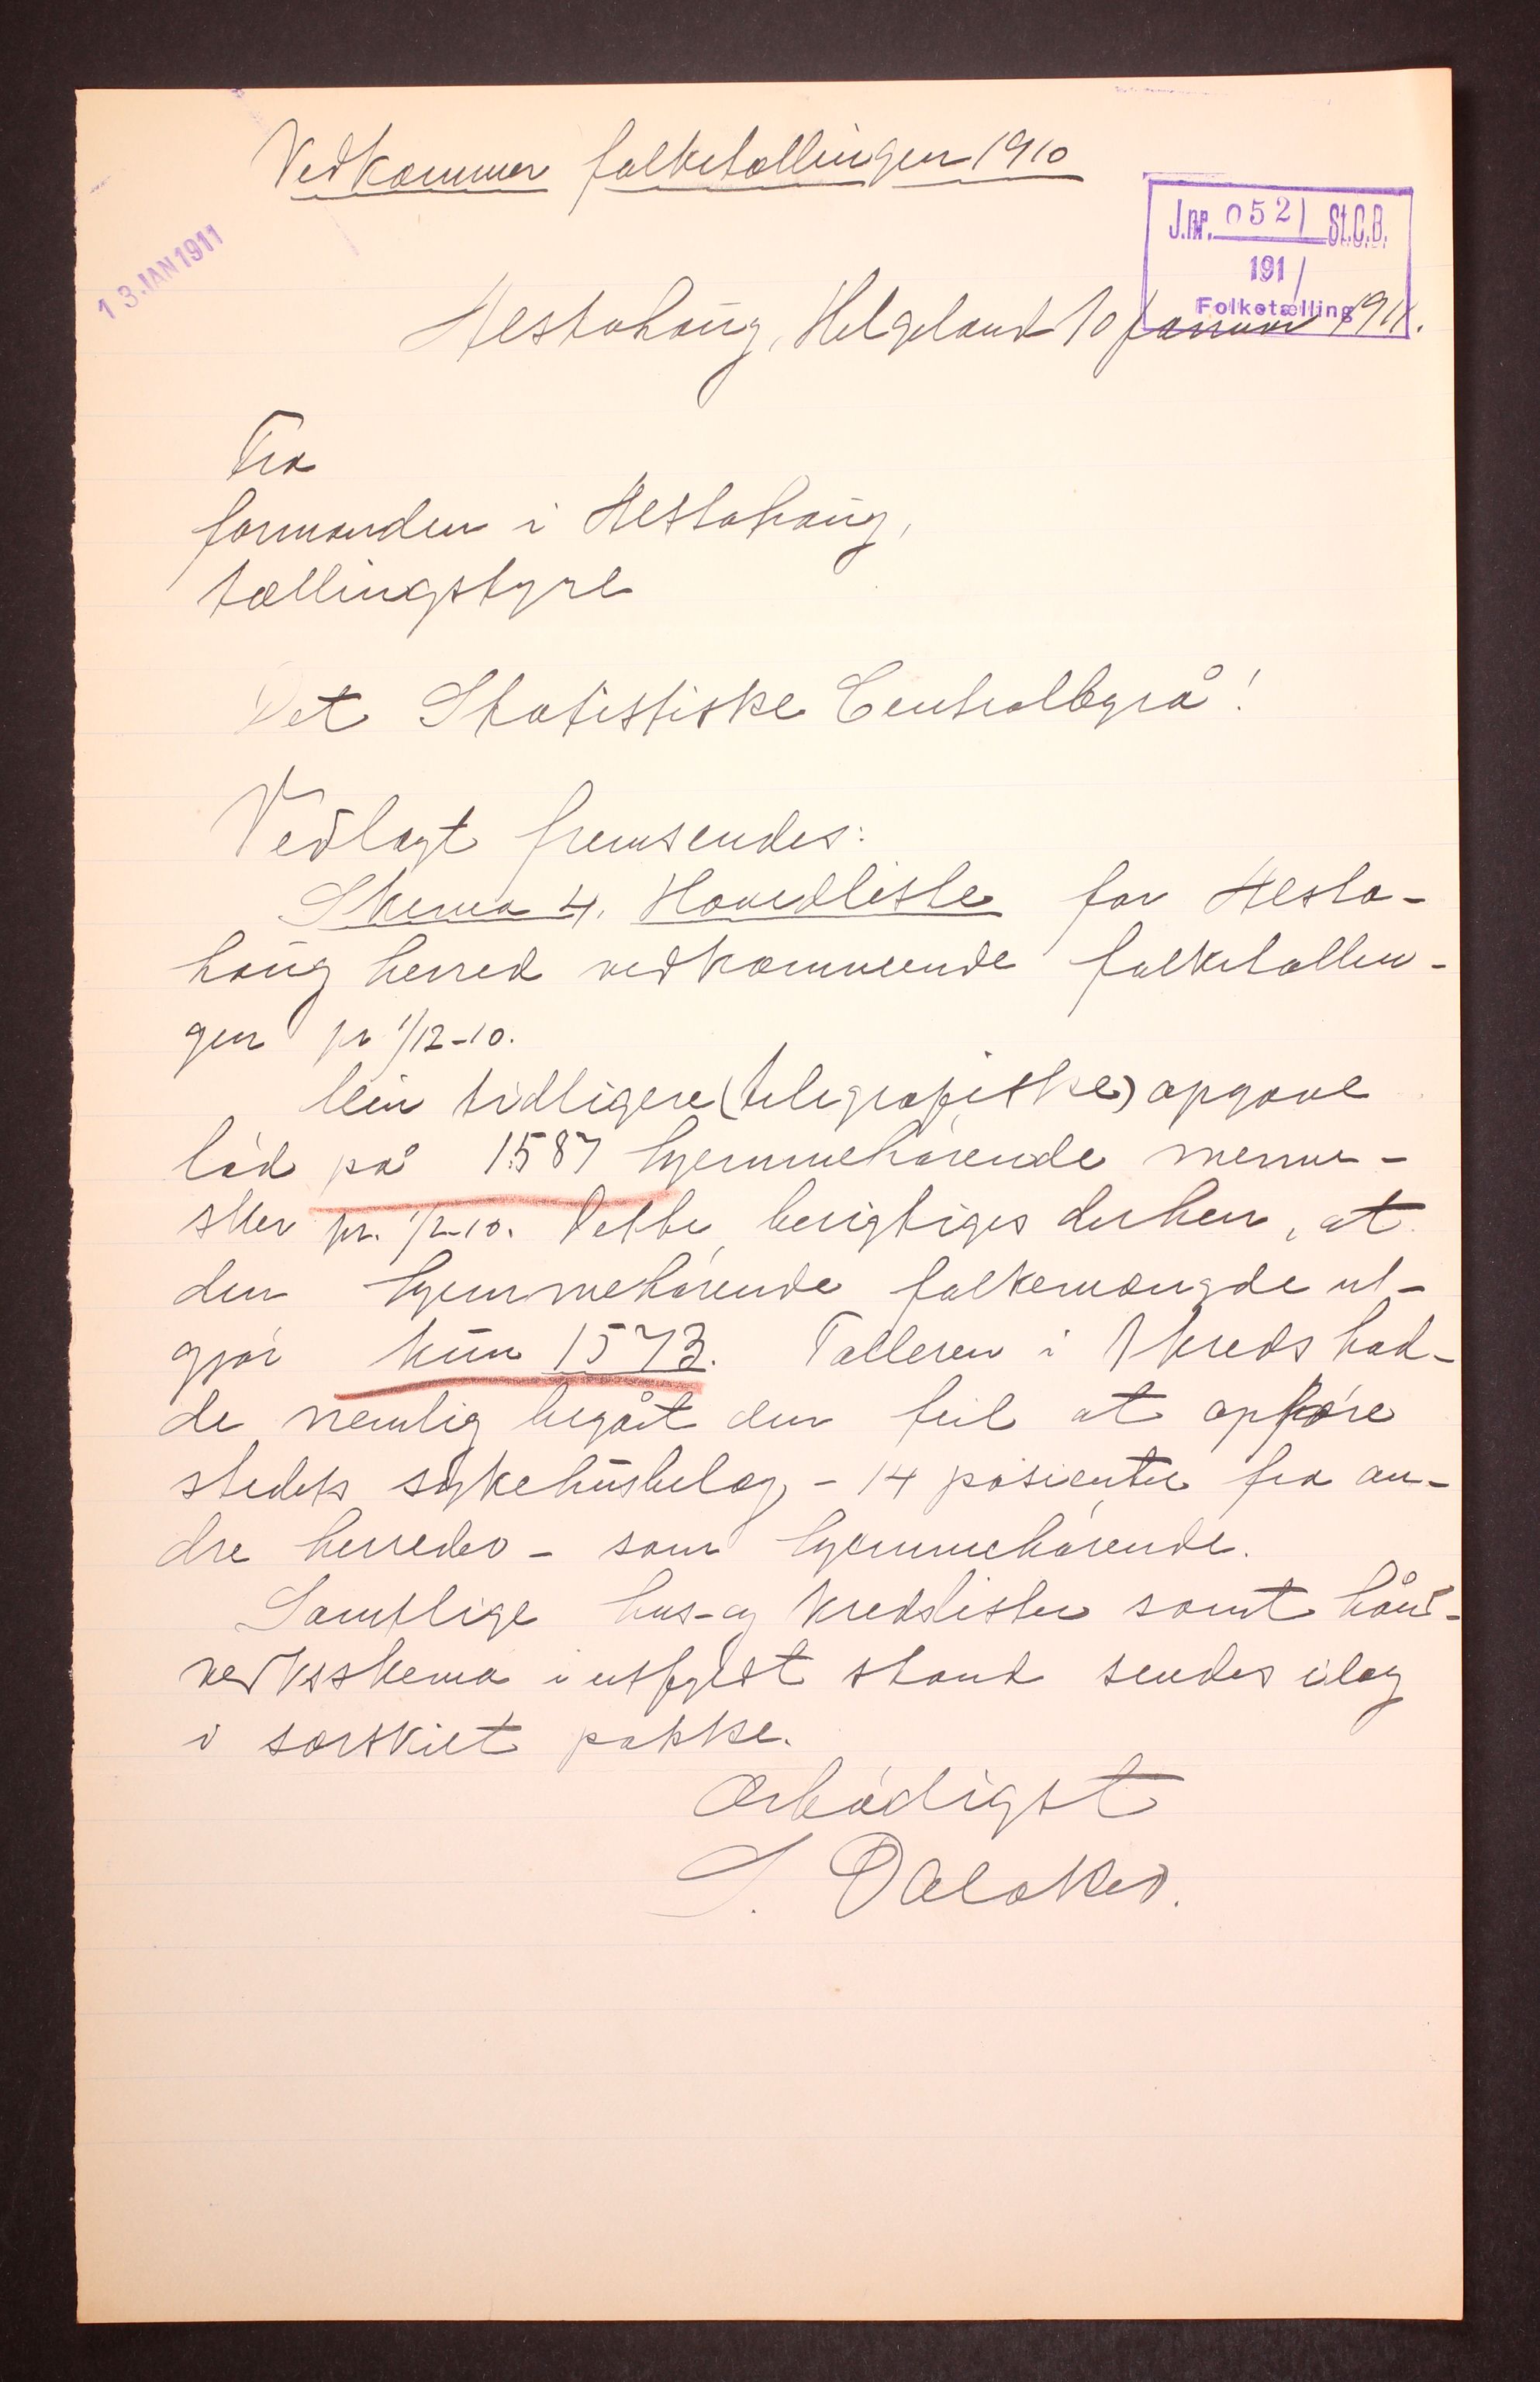 Vedkommer folketællingen 1910
13 JAN 1911
J.nr. 0521 St.C.B.
1911
Folketælling
Alstahaug, Helgeland 10 Januar 1911.
Fra
formanden i Alstahaug,
tællingstyre
Det Statistiske Centralbyrå!
Vedlagt fremsendes:
Skema 4. Hovedliste for Alsta-
haug herred vedkommende folketællin-
gen pr 1/12-10.
Min tidligere (telegrafiske) opgave
lød på 1587 hjemmehørende menne-
sker pr. 1/12-10. Dette berigtiges derhen, at
den hjemmehørende folkemængde ut-
gjør kun 1573. Tælleren i 1 kreds had-
de nemlig begåt den feil at opføre
stedets sykehusbelæg - 14 pasienter fra an-
dre herreder - som hjemmehørende.
Samtlige hus- og kredslister samt hånd-
verksskema i utfyldt stand sendes idag
i særskilt pakke.
Ærbødigst
S. Dalaker.